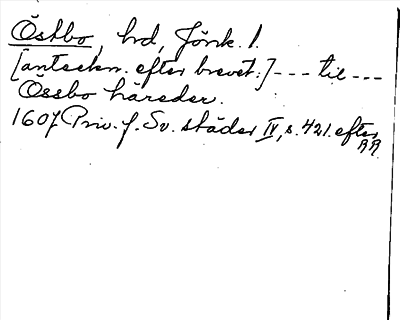 Östbo, hd, Jönk. l.
[anteckn. efter brevet:] --- til ---
Össbo häreder.
1607 Priv. f. Sv. städer IV, s. 421. efter
RR.